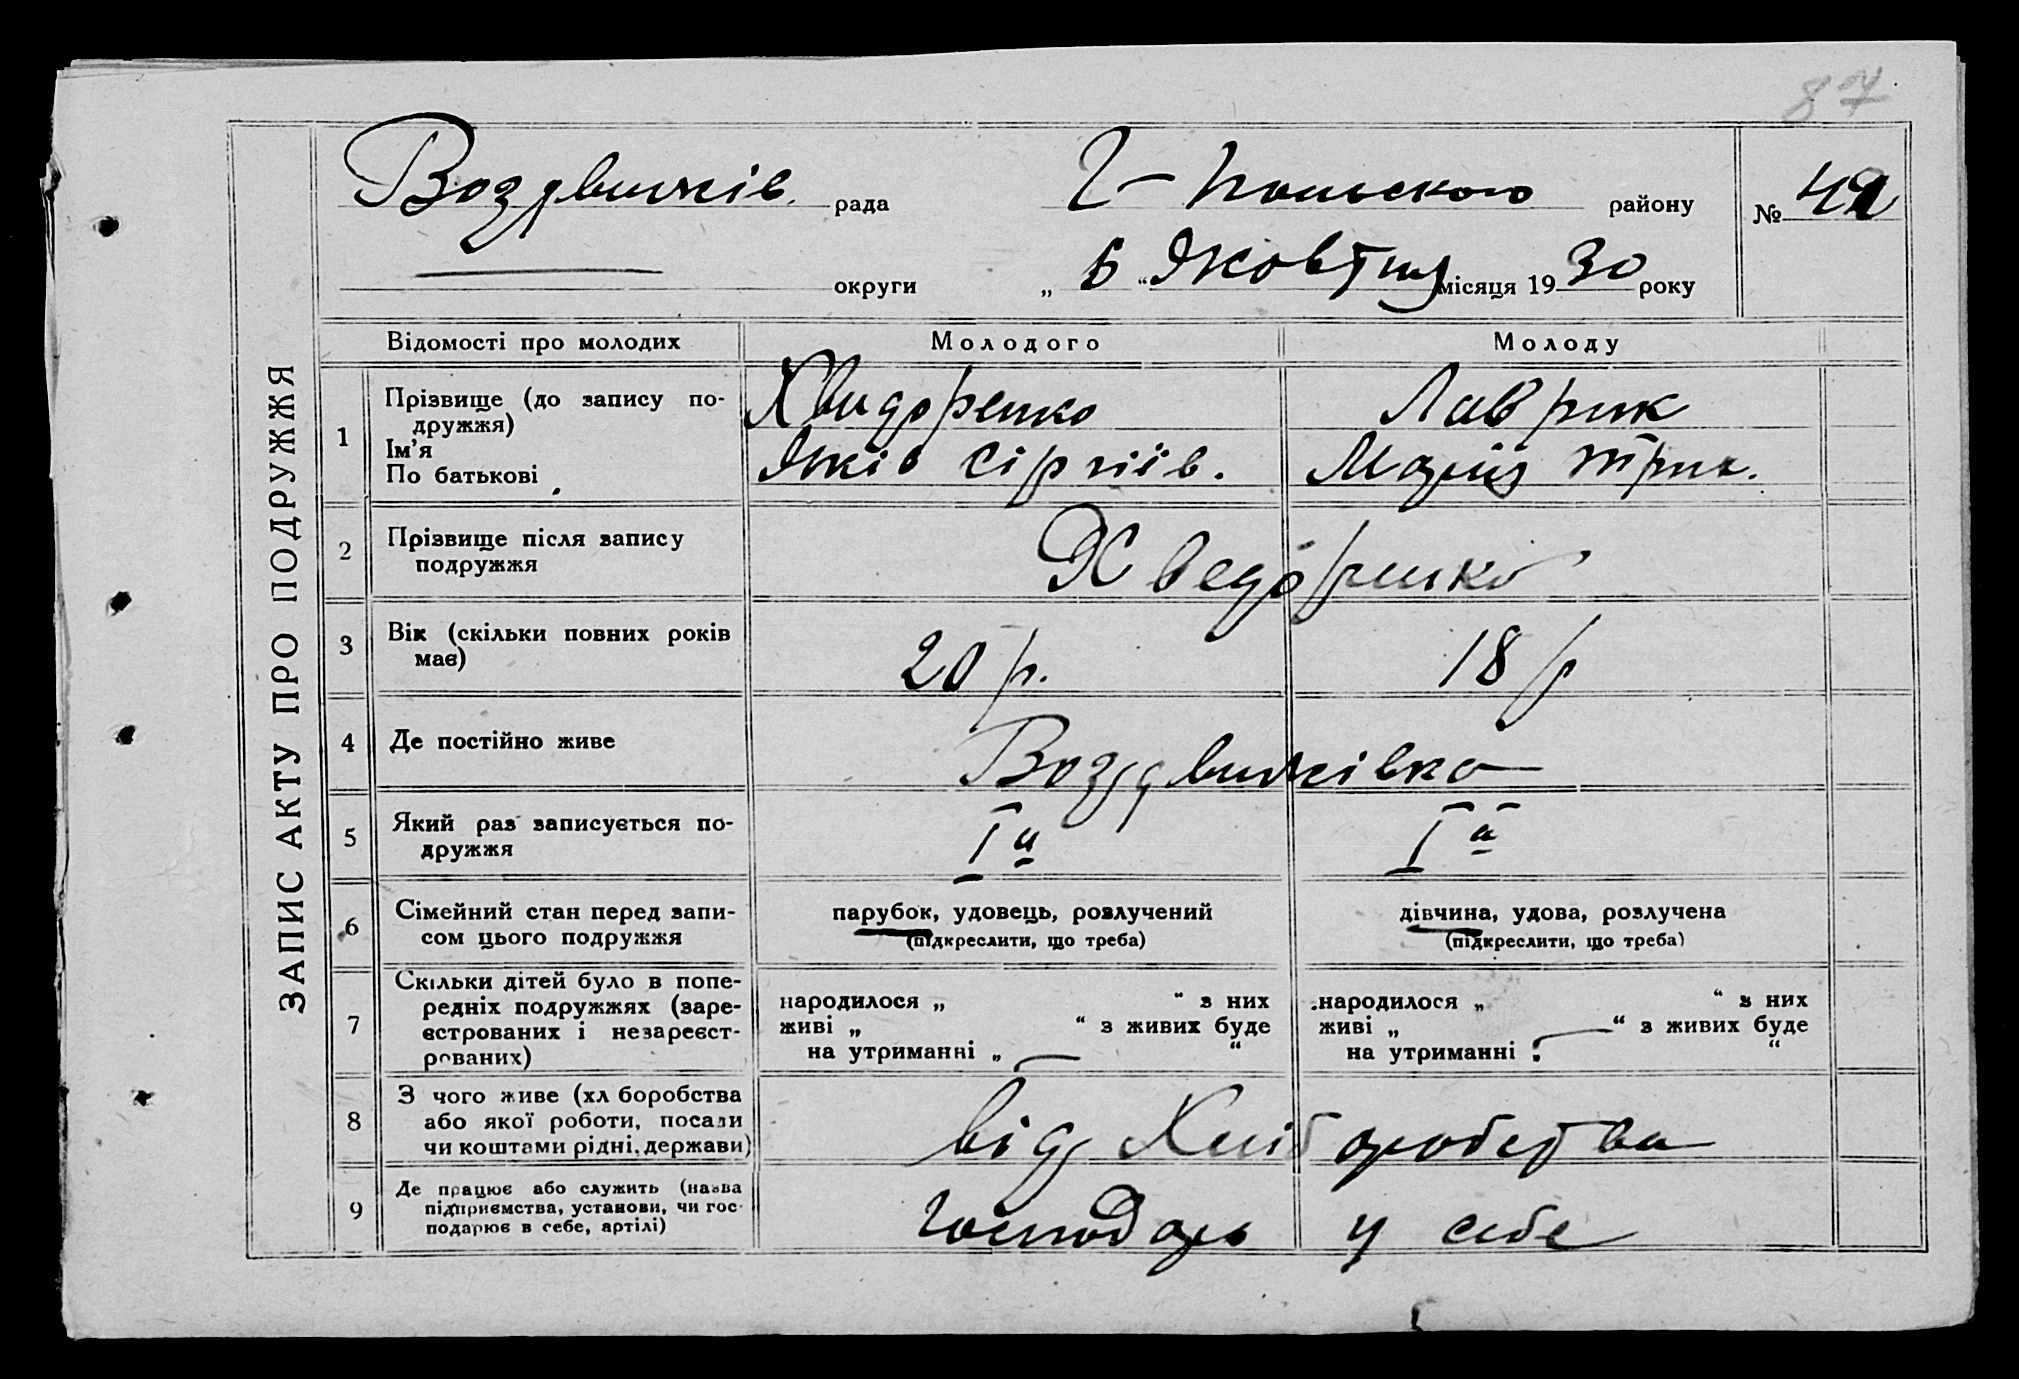 87
Воздвижків. рада
Г-Польского району
№ 42
округи
„ 5 “ Жовтня місяця 1930 року
ЗАПИС АКТУ ПРО ПОДРУЖЖЯ
Відомості про молодих
Молодого
Молоду
1
Прізвище (до запису по-
дружжя)
Ім’я
По батькові
Хвидоренко
Яків Сіргіїв.
Лаврик
Марія
2
Прізвище після запису
подружжя
Хведоренко
3
Вік (скільки повних років
має)
20 р.
18 р
4
Де постійно живе
Воздвижівка
5
Який раз записується по-
дружжя
Iй
Iй
6
Сімейний стан перед запи-
сом цього подружжя
парубок, удовець, розлучений
(підкреслити, що треба)
дівчина, удова, розлучена
(підкреслити, що треба)
7
Скільки дітей було в попе-
редніх подружжях (заре-
єстрованих і незареєст-
рованих)
народилося „ “ з них
живі „ “ з живих буде
на утриманні „ — “
народилося „ “ з них
живі „ — “ з живих буде
на утриманні „ “
8
З чого живе (хл боробства
або якої роботи, посади
чи коштами рідні, держави)
від Хліборобства
9
Де працює або служить (назва
підприємства, установи, чи гос-
подарює в себе, артілі)
Господарь у себе